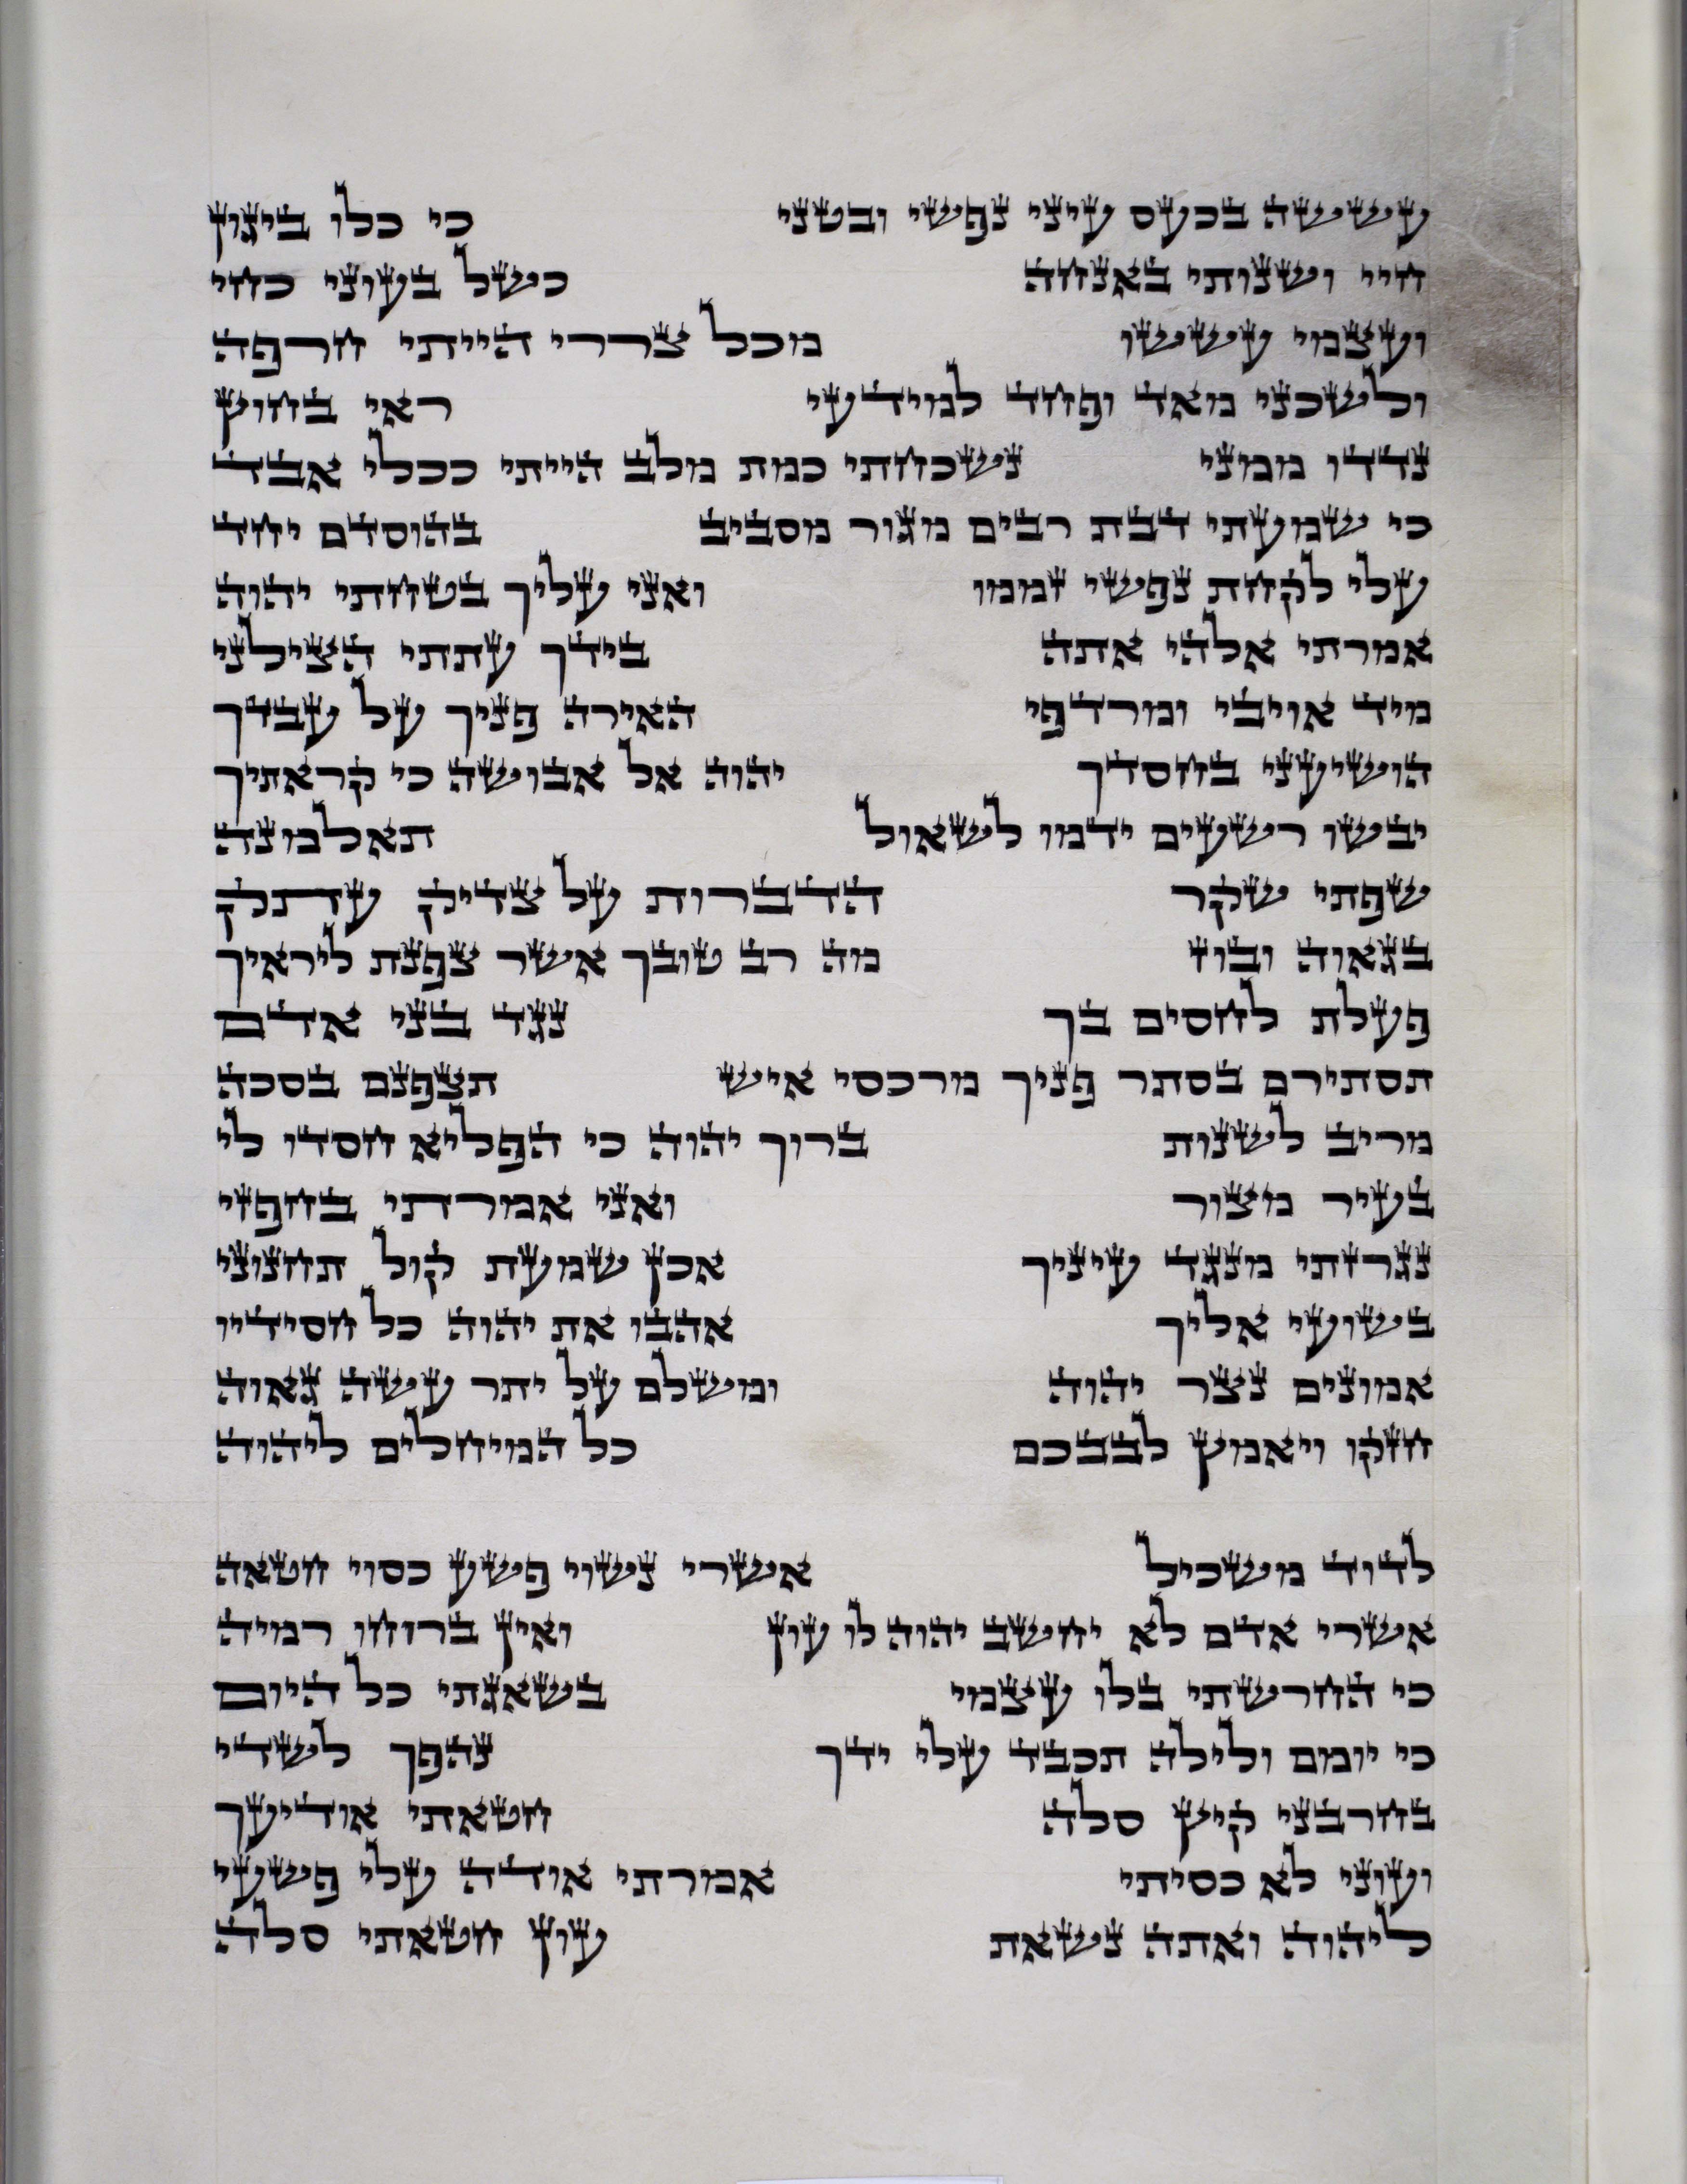 עששה בכעס עיני נפשי ובטני כי כלו ביגון
חיי ושנותי באנחה כשל בעוני כחי
ועצמי עששו מכל צררי הייתי חרפה
ולשכני מאד ופחד למידעי ראי בחוץ
נדדו ממני נשכחתי כמת מלב הייתי ככלי אבד
כי שמעתי דבת רבים מגור מסביב בהוסדם יחד
עלי לקחת נפשי זממו ואני עליך בטחתי יהוה
אמרתי אלהי אתה בידך עתתי הצילני
מיד אויבי ומרדפי האירה פניך על עבדך
הושיעני בחסדך יהוה אל אבושה כי קראתיך
יבשו רשעים ידמו לשאול תאלמנה
שפתי שקר הדברות על צדיק עתק
בגאוה ובוז מה רב טובך אשר צפנת ליראיך
פעלת לחסים בך נגד בני אדם
תסתירם בסתר פניך מרכסי איש תצפנם בסכה
מריב לשנות ברוך יהוה כי הפליא חסדו לי
בעיר מצור ואני אמרתי בחפזי
נגרזתי מנגד עיניך אכן שמעת קול תחנוני
בשועי אליך אהבו את יהוה כל חסידיו
אמונים נצר יהוה ומשלם על יתר עשה גאוה
חזקו ויאמץ לבבכם כל המיחלים ליהוה
לדוד משכיל אשרי נשוי פשע כסוי חטאה
אשרי אדם לא יחשב יהוה לו עון ואין ברוחו רמיה
כי החרשתי בלו עצמי בשאגתי כל היום
כי יומם ולילה תכבד עלי ידך נהפך לשדי
בחרבני קיץ סלה חטאתי אודיעך
ועוני לא כסיתי אמרתי אודה עלי פשעי
ליהוה ואתה נשאת עון חטאתי סלה